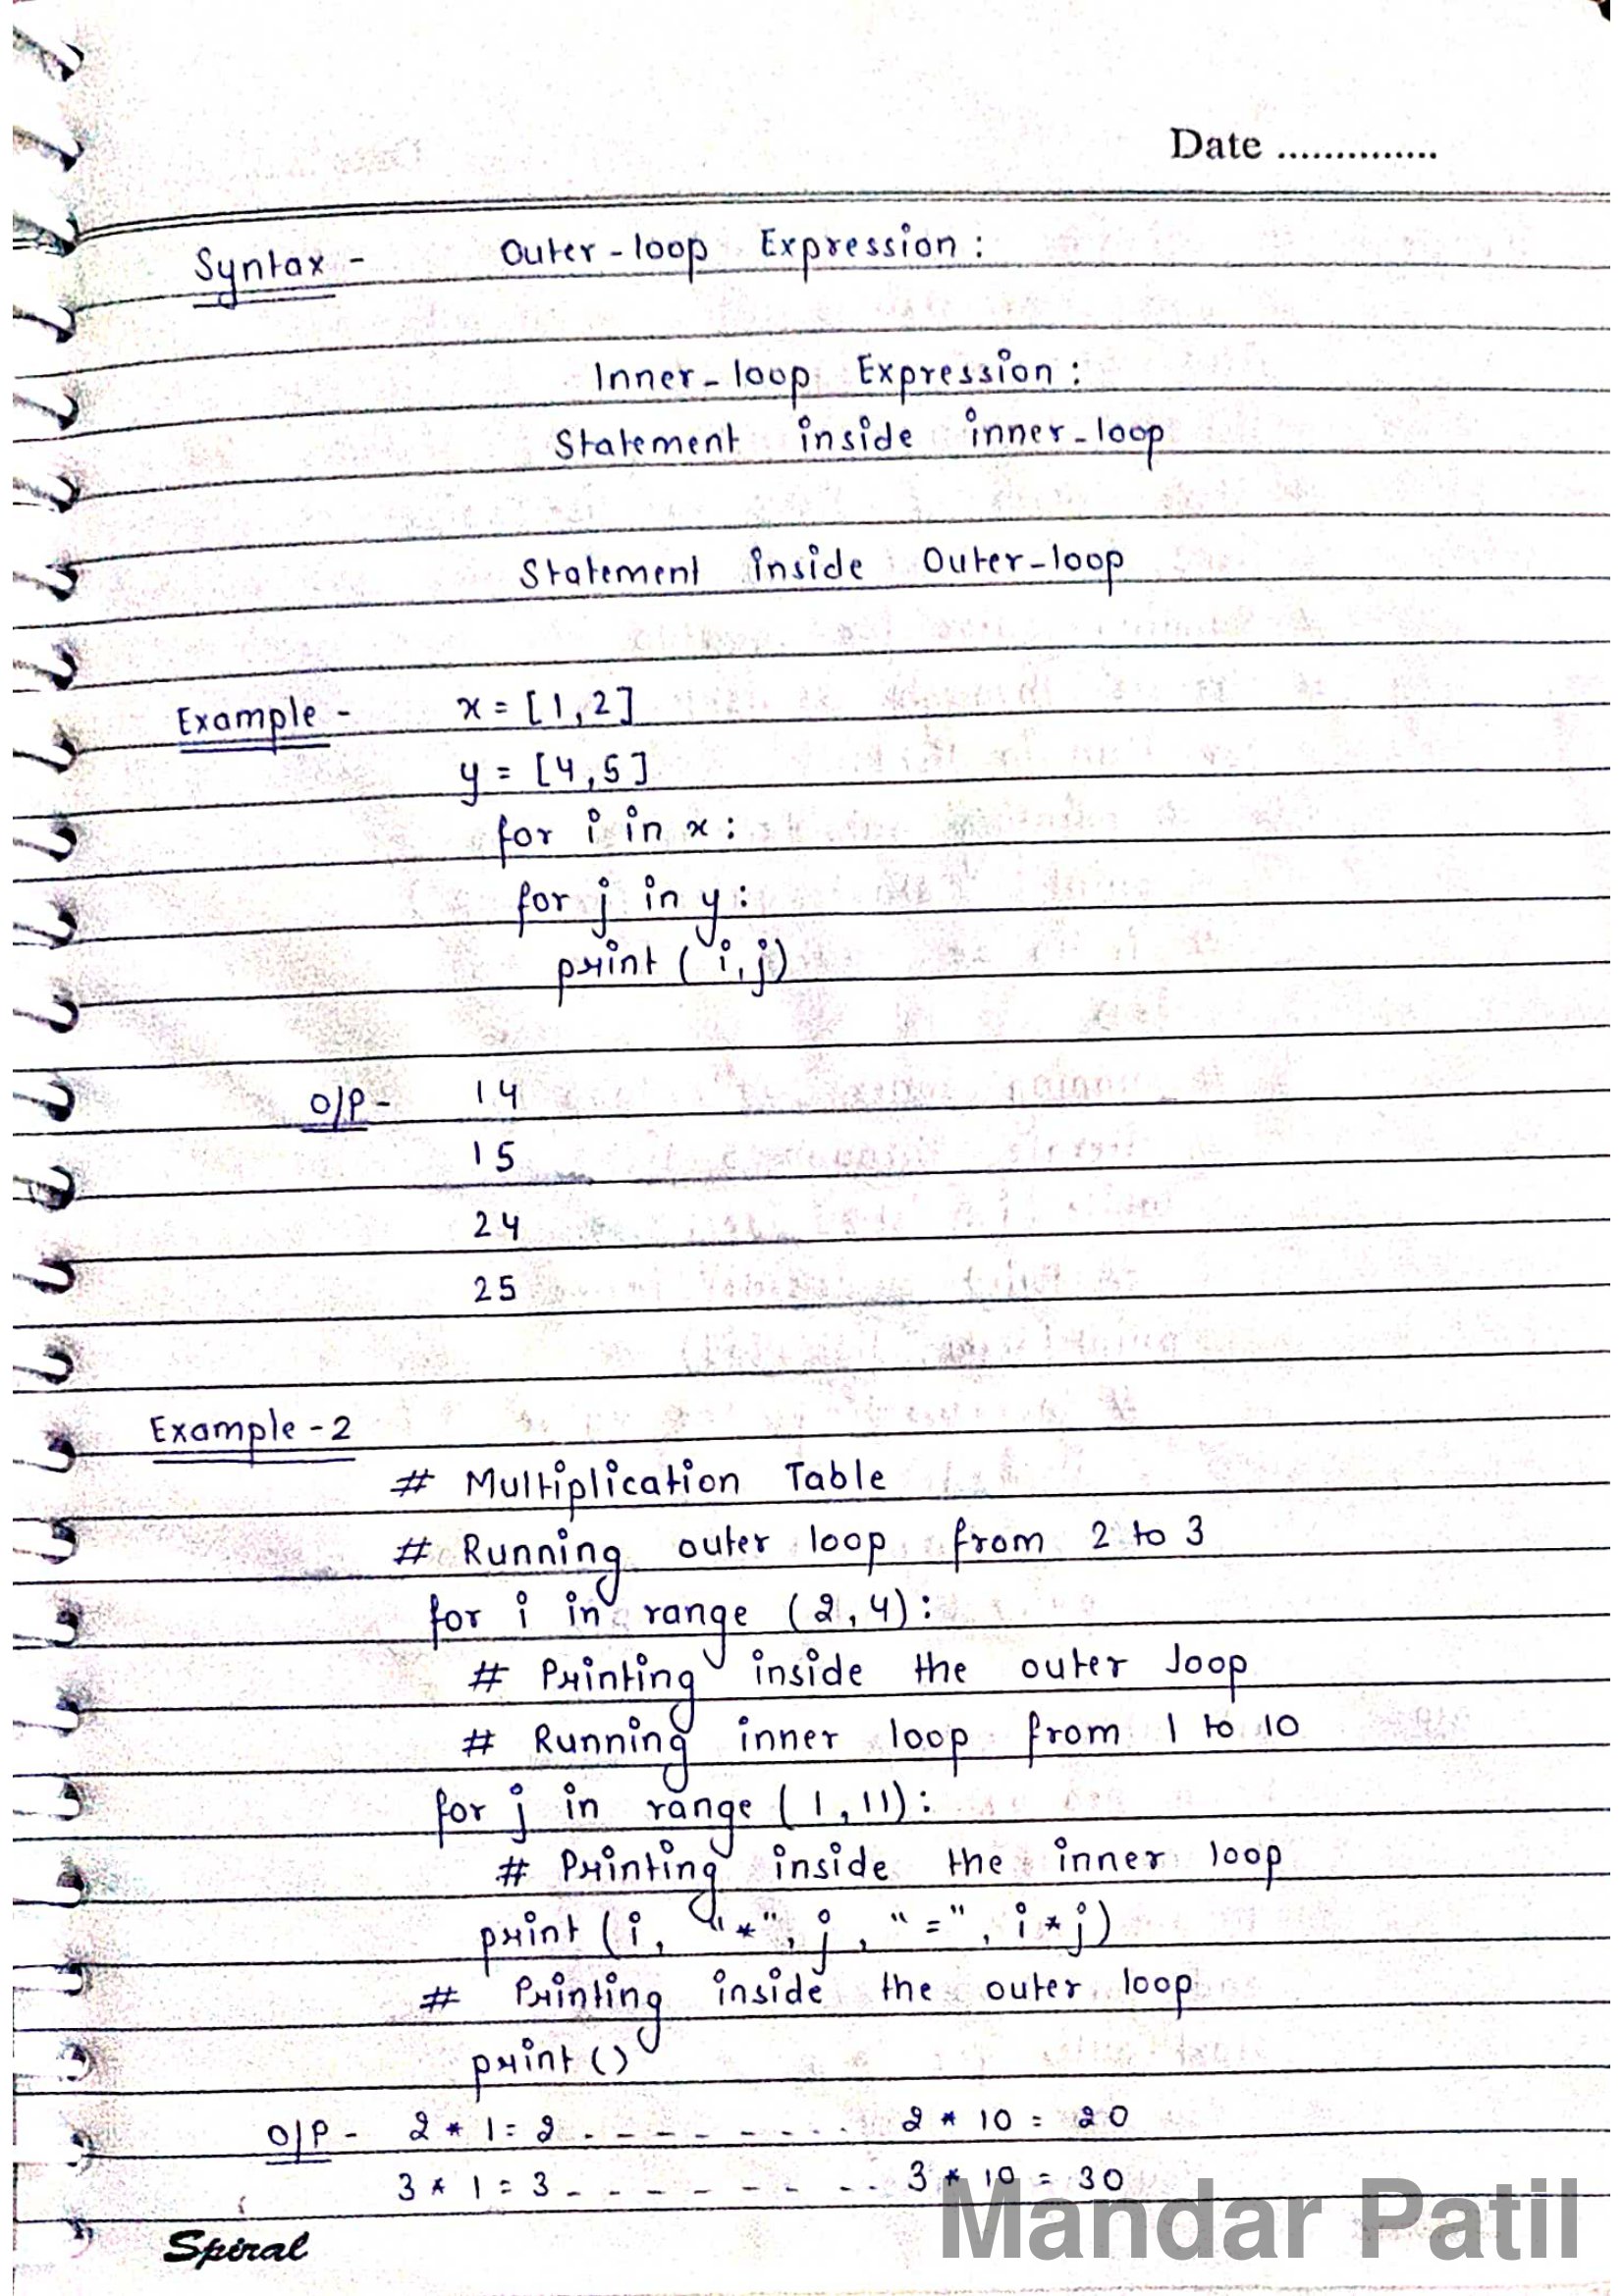 Date ..............
Syntax - Outer-loop Expression :
Inner-loop Expression :
Statement inside inner-loop
Statement inside Outer-loop
Example - x = [1,2]
y = [4,5]
for i in x :
for j in y :
print ( i, j)
O/P - 14
15
24
25
Example - 2
# Multiplication Table
# Running outer loop from 2 to 3
for i in range (2,4) :
# Printing inside the outer loop
# Running inner loop from 1 to 10
for j in range (1,11) :
# Printing inside the inner loop
print (i, "*", j, "=", i*j)
# Printing inside the outer loop
print ()
O/P - 2 * 1 = 2 - - - - - - - - - 2 * 10 = 20
3 * 1 = 3 - - - - - - - - - 3 * 10 = 30
Mandar Patil
Spiral